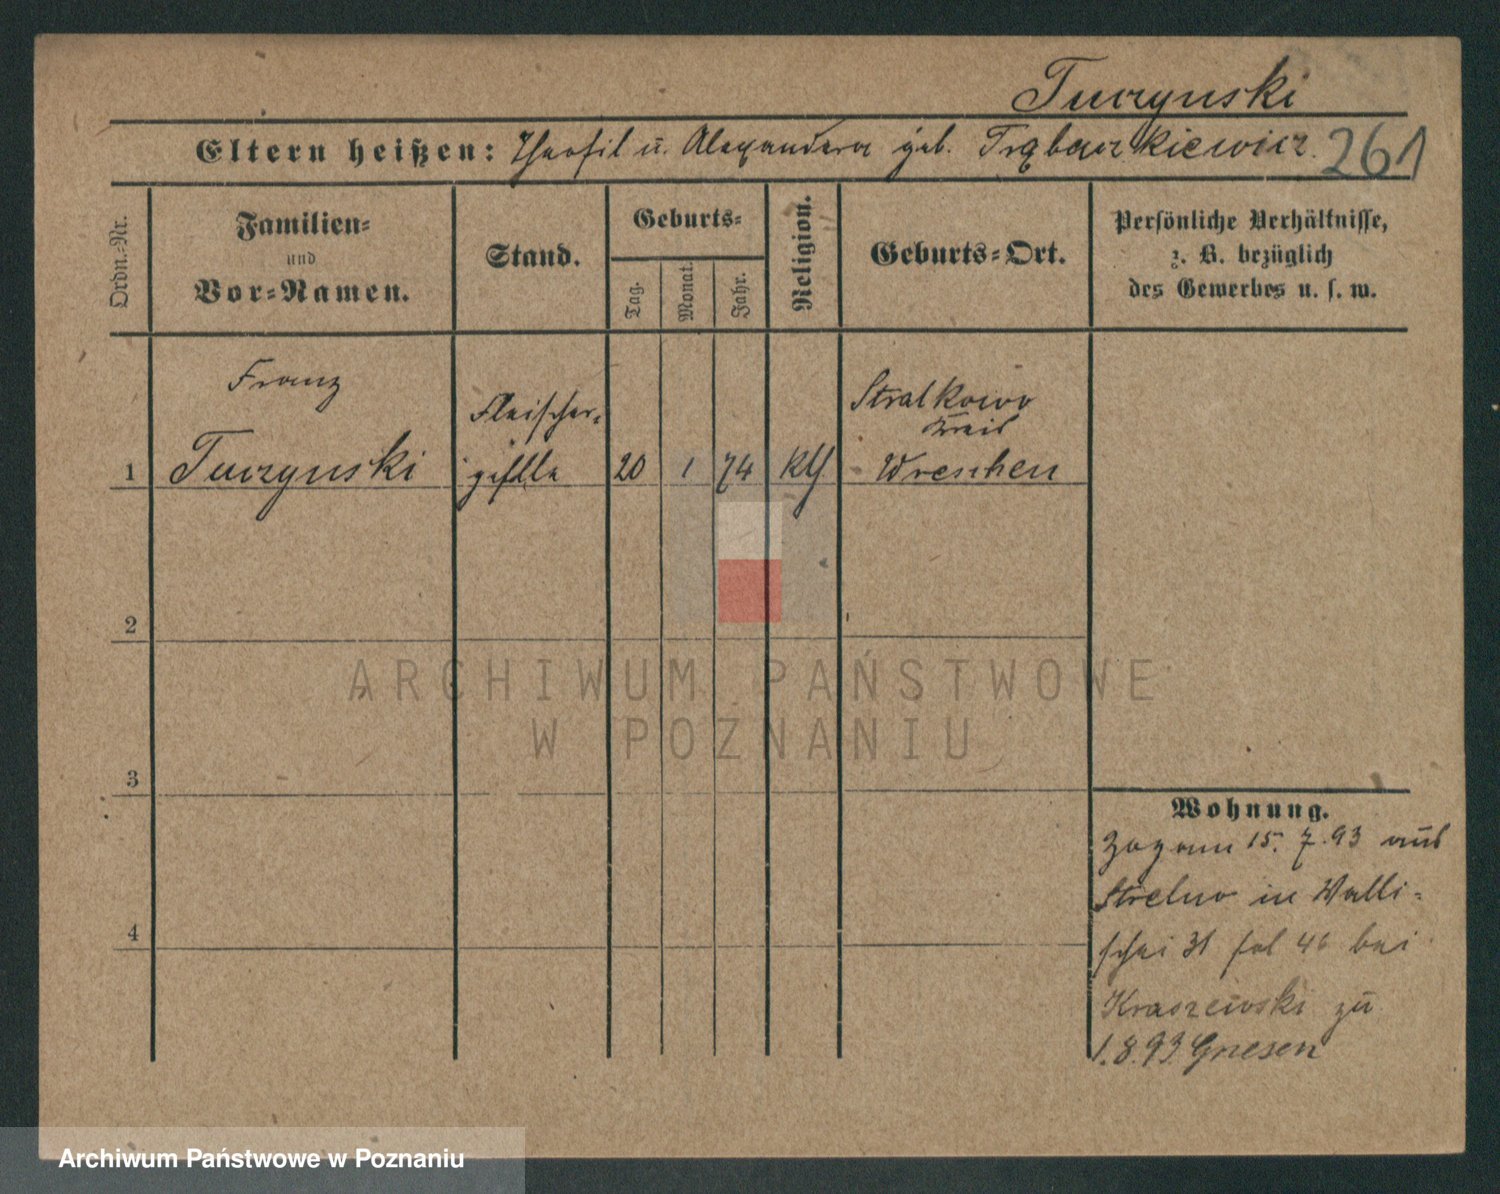 Turzynski
Eltern heißen: Theofil u. Alexandera geb. Trąbarkiewicz. 261
Ordn.-Nr.
Familien-
und
Vor-Namen.
Stand.
Geburts-
Tag.
Monat.
Jahr.
Religion.
Geburts-Ort.
Persönliche Verhältnisse,
z. B. bezüglich
des Gewerbes u. s. w.
Franz
1 Turzynski
Fleischer-
geselle
20 1 74 kth
Stralkowo
Kreis
Wreschen
2
3
4
Wohnung.
Zugam 15. 7. 93 aus
Strelno in Walli-
schei 31 bei
Kraszewski zu
1. 8. 93. Gnesen
ARCHIWUM PAŃSTWOWE
W POZNANIU
Archiwum Państwowe w Poznaniu